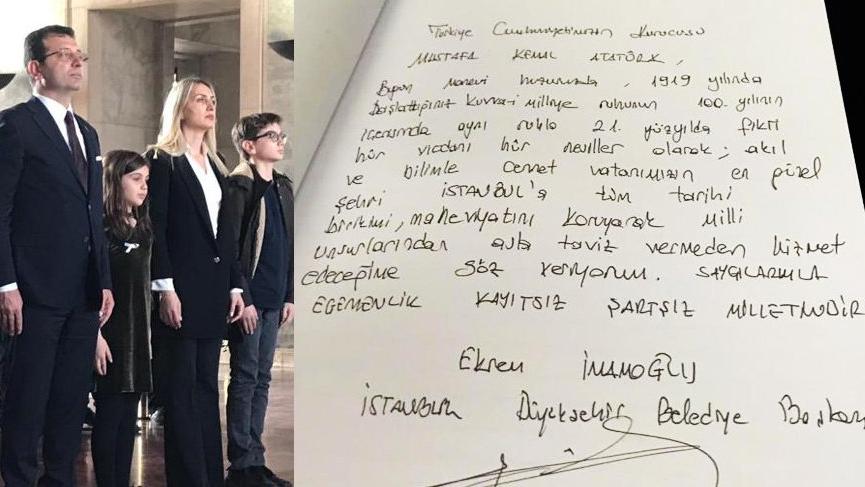 Türkiye Cumhuriyetimizin Kurucusu
MUSTAFA KEMAL ATATÜRK,
Bugün manevi huzurunuzda, 1919 yılında
Başlattığınız Kuvva-i Milliye ruhunun 100. yılının
içerisinde aynı ruhla 21. yüzyılda fikri
hür vicdanı hür nesiller olarak; akıl
ve bilimle cennet vatanımızın en güzel
şehri İSTANBUL'a tüm tarihi
birikimi, maneviyatını koruyarak milli
unsurlarından asla taviz vermeden hizmet
edeceğime söz veriyorum. SAYGILARIMLA
EGEMENLİK KAYITSIZ ŞARTSIZ MİLLETİNDİR
Ekrem İMAMOĞLU
İSTANBUL Büyükşehir Belediye Başkanı